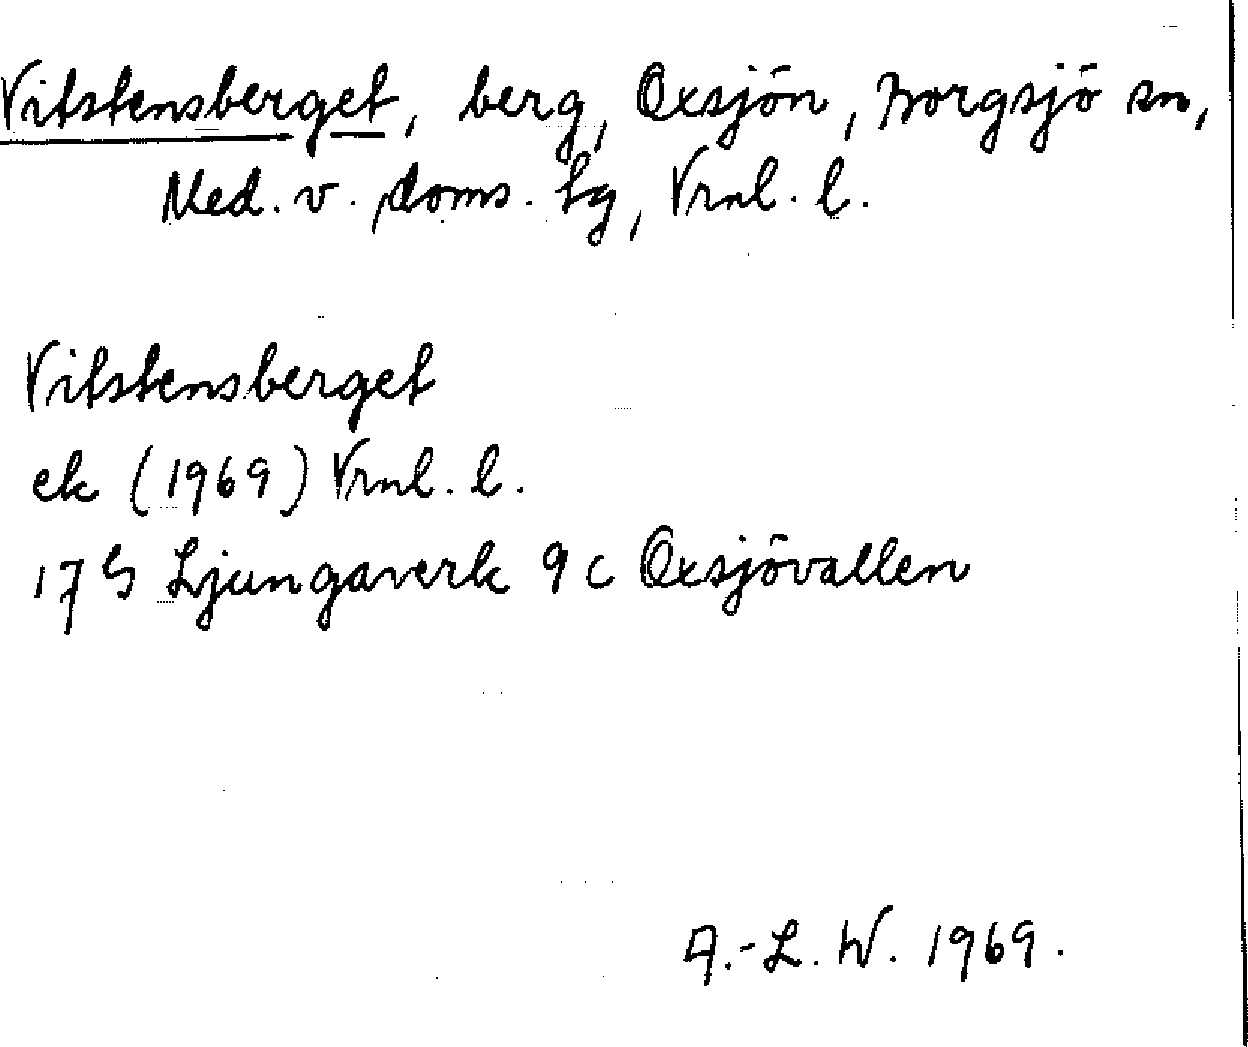 Vitstensberget, berg, Oxsjön, Borgsjö sn,
Med. v. doms. tg, Vrnl. l.
Vitstensberget
ek (1969) Vrnl. l.
17 G Ljungaverk 9 c Oxsjövallen
A.-L. W. 1969.